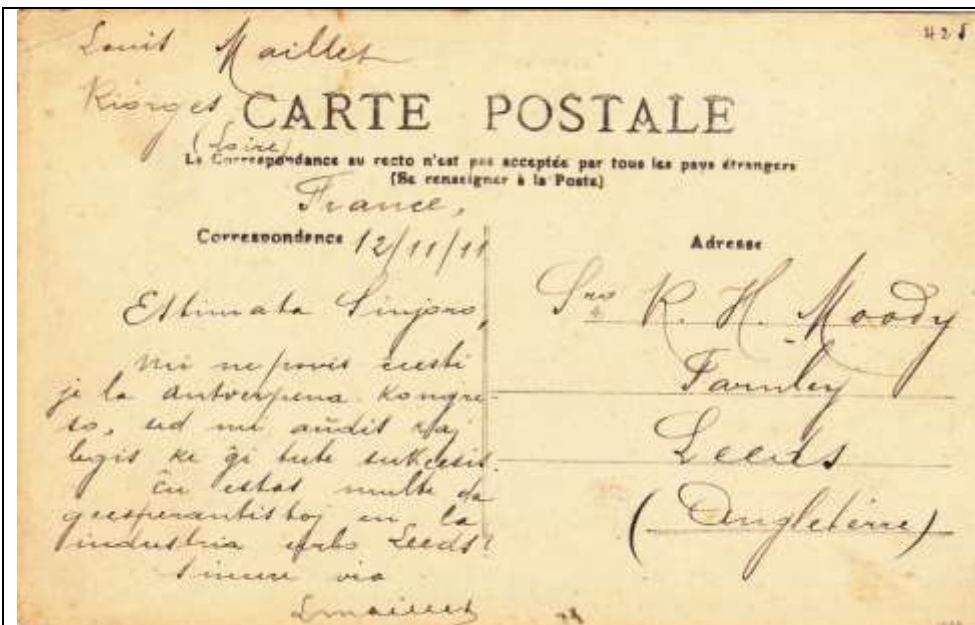 428
Louis Maillet
Riorges
CARTE POSTALE
(Loire)
La Correspondance au recto n'est pas acceptée par tous les pays étrangers
(Se renseigner à la Poste)
France,
Correspondance 12/11/11
Adresse
Estimata Sinjoro,
Mi ne povis ĉeesti
je la antverpena kongre-
so, sed mi aŭdis kaj
legis ke ĝi tute sukcesis.
Ĉu estas multe da
geesperantistoj en la
industria urbo Leeds?
Sincere via
LMaillet
Sro R. H. Moody
Farnley
Leeds
(Angleterre)